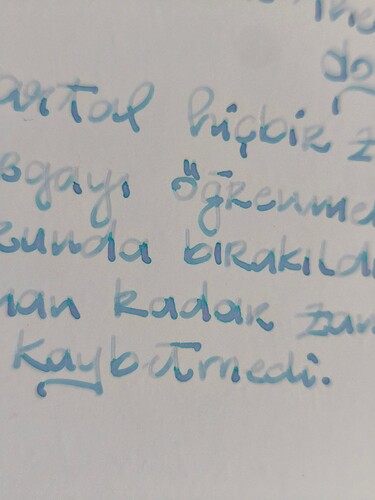 do
artal hiçbir z
rgayı öğrenme
runda bırakıldı
man kadar zam
kaybetmedi.